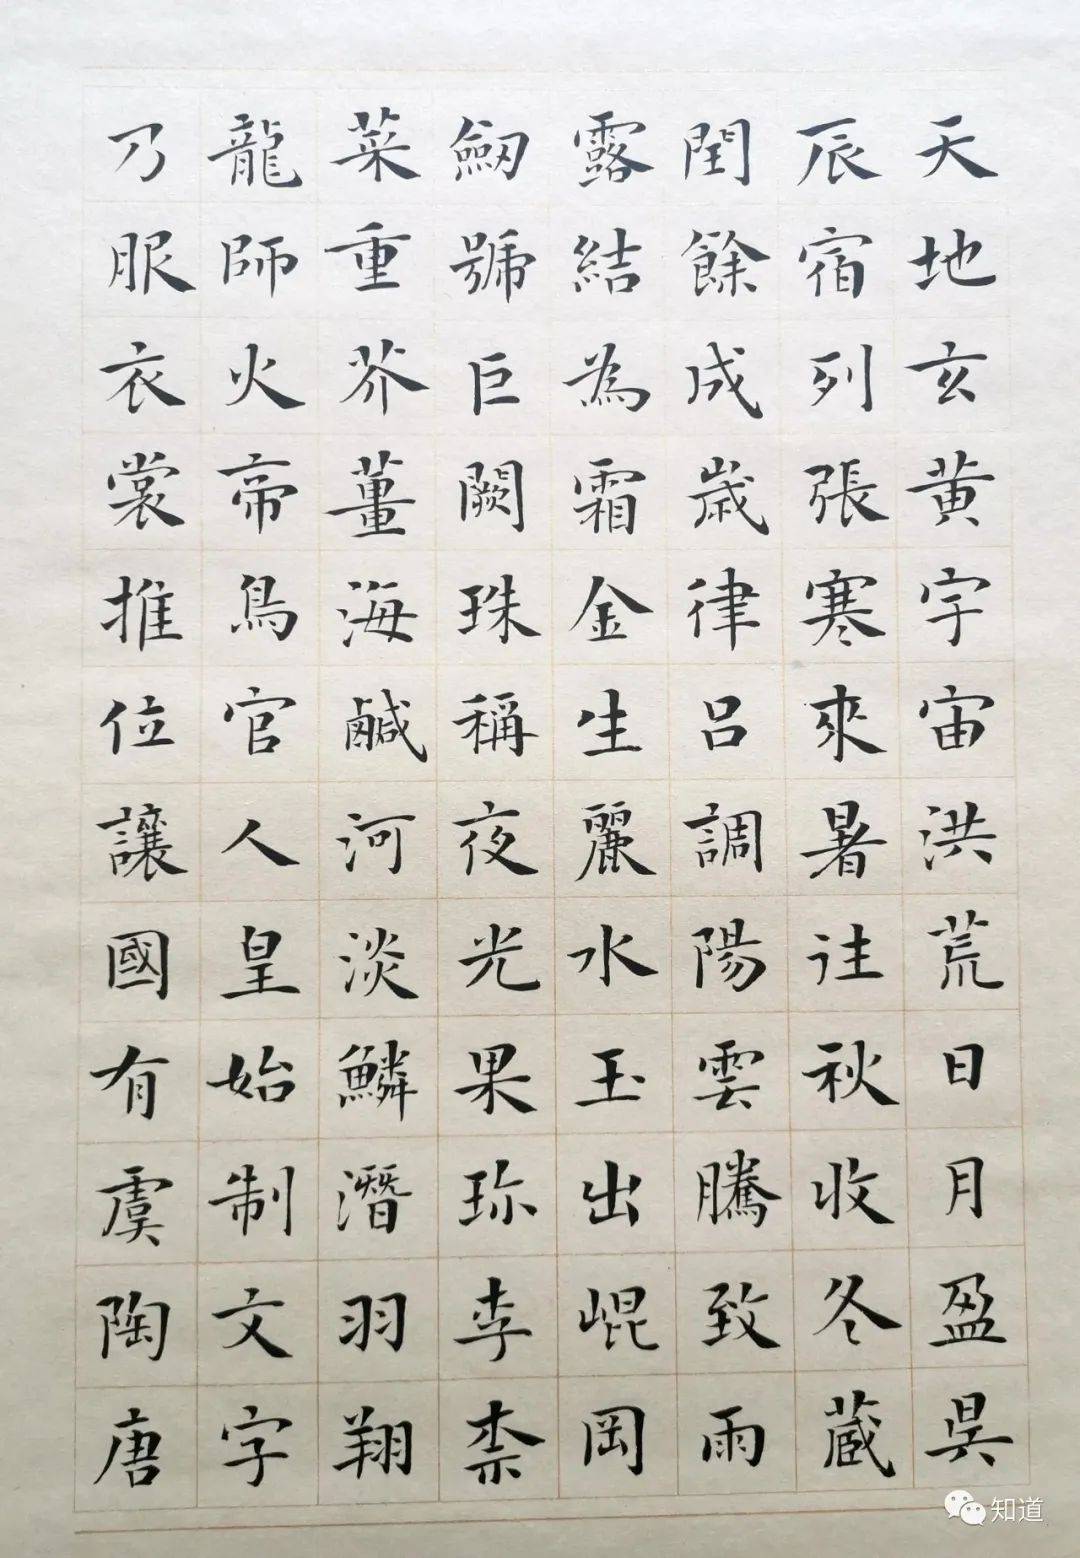 天地玄黄宇宙洪荒日月盈昃
辰宿列張寒來暑往秋收冬蔵
閏餘成歲律吕調陽雲騰致雨
露結為霜金生麗水玉出崐岡
劒號巨闕珠稱夜光果珎李柰
菜重芥薑海鹹河淡鱗潛羽翔
龍師火帝鳥官人皇始制文字
乃服衣裳推位讓國有虞陶唐
知道